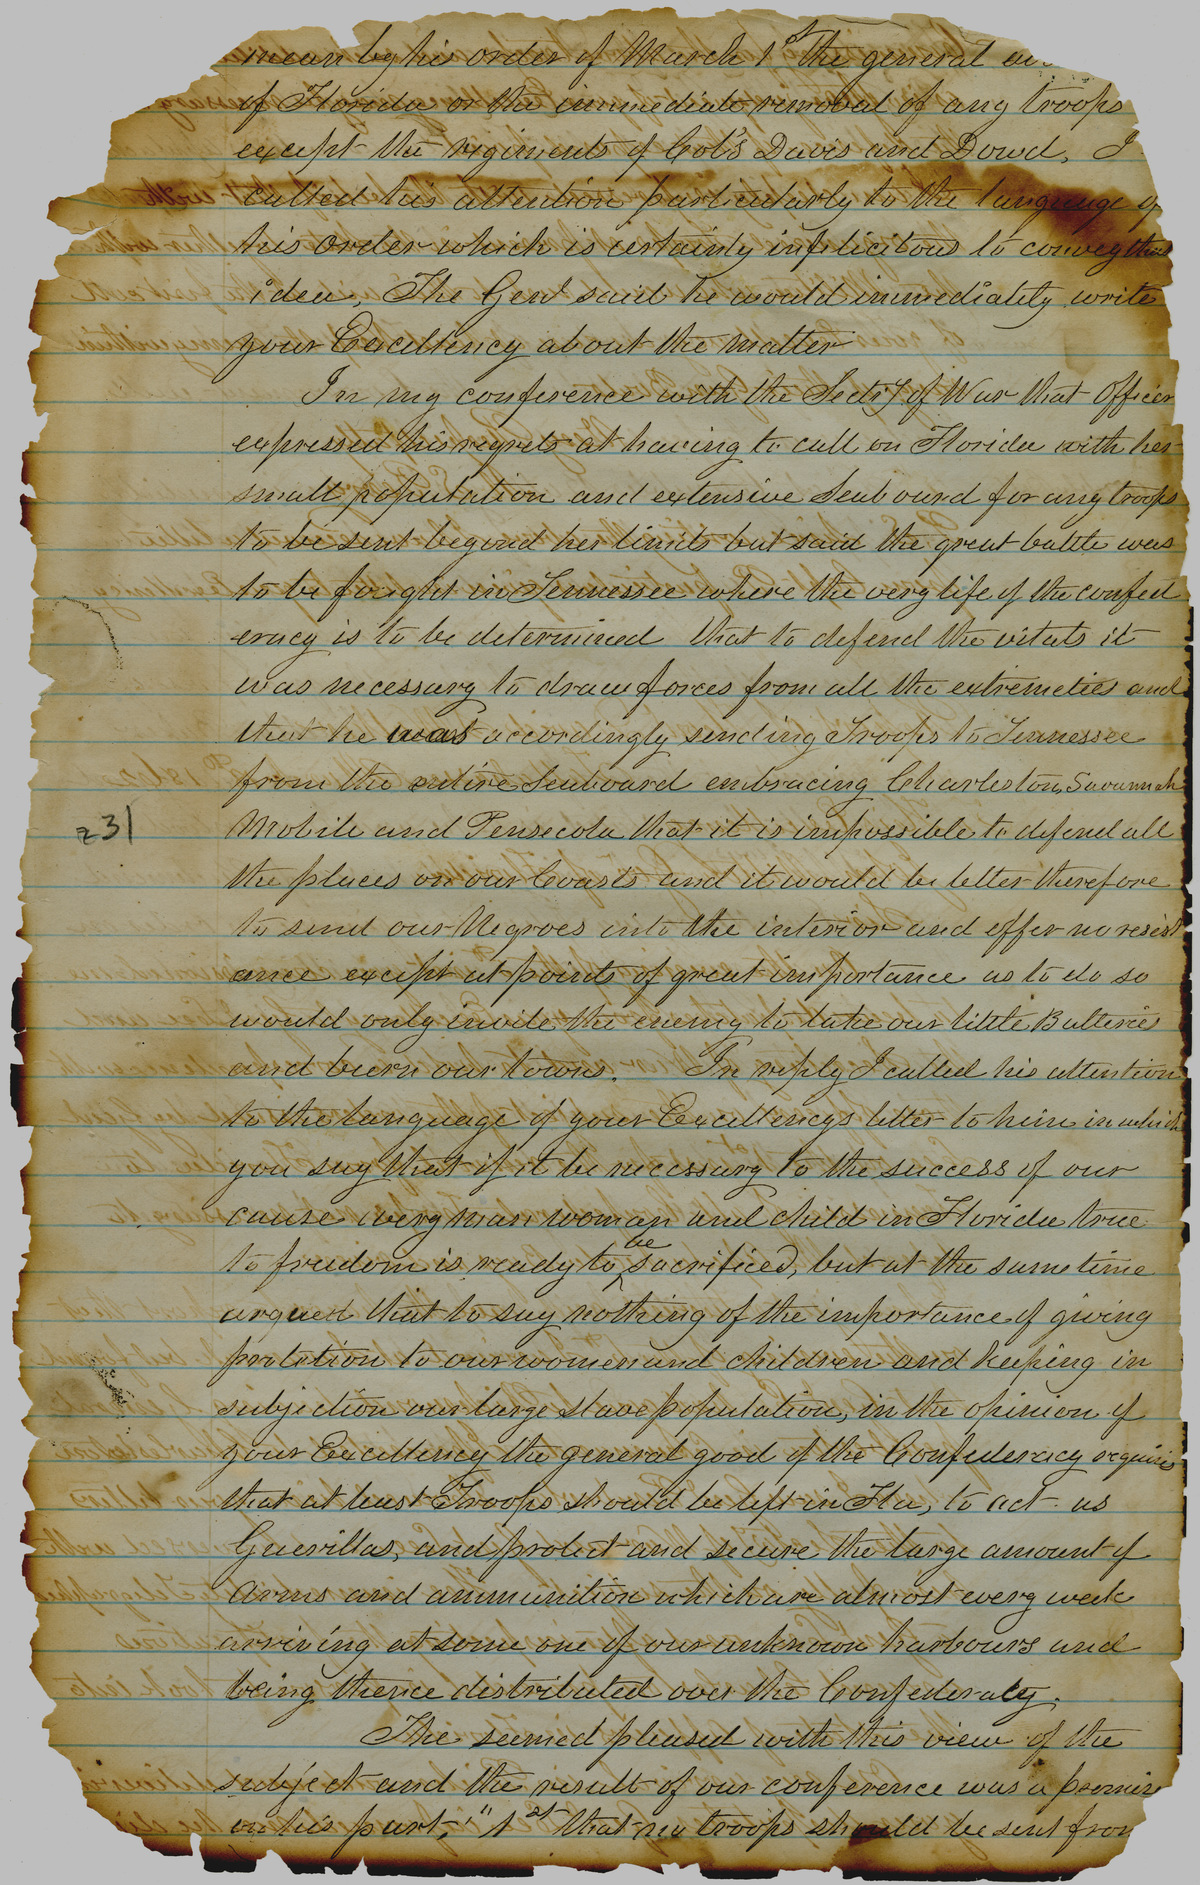 mean by his order of March 1st the general
of Florida or the immediate removal of any troops
except the regiments of Col's Davis and Dowd, I
called his attention particularly to the language of
his order which is certainly infelicitous to convey this
idea, The Genl said he would immediately write
your Excellency about the matter
In my conference with the Sect'y of War that Officer
expressed his regrets at having to call on Florida with her
small population and extensive Seaboard for any troops
to be sent beyond her limits but said the great battle was
to be fought in Tennessee where the very life of the confed
eracy is to be determined that to defend the vitals it
was necessary to draw forces from all the extremeties and
that he was accordingly sending Troops to Tennessee
from the entire Seaboard embracing Charleston, Savannah
231
Mobile and Pensecola that it is impossible to defend all
the places on our Coasts and it would be better therefore
to send our Negroes into the interior and offer no resist
ance except at points of great importance as to do so
would only invite the enemy to take our little Batteries
and burn our towns. In reply I called his attention
to the language of your Excellencys letter to him in which
you say that if it be necessary to the success of our
cause every man woman and child in Florida true
to freedom is ready to be sacrificed, but at the same time
argued that to say nothing of the importance of giving
protetion to our women and children and keeping in
subjection our large slave population, in the opinion of
your Excellency the general good of the Confederacy requires
that at least Troops should be left in Fla, to act as
Guerillas, and protect and secure the large amount of
arms and ammunition which are almost every week
arriving at some one of our unknown harbours and
being thence distributed over the Confederacy.
The seemed pleased with this view of the
subject and the result of our conference was a promise
on his part, "1st that no troops should be sent from